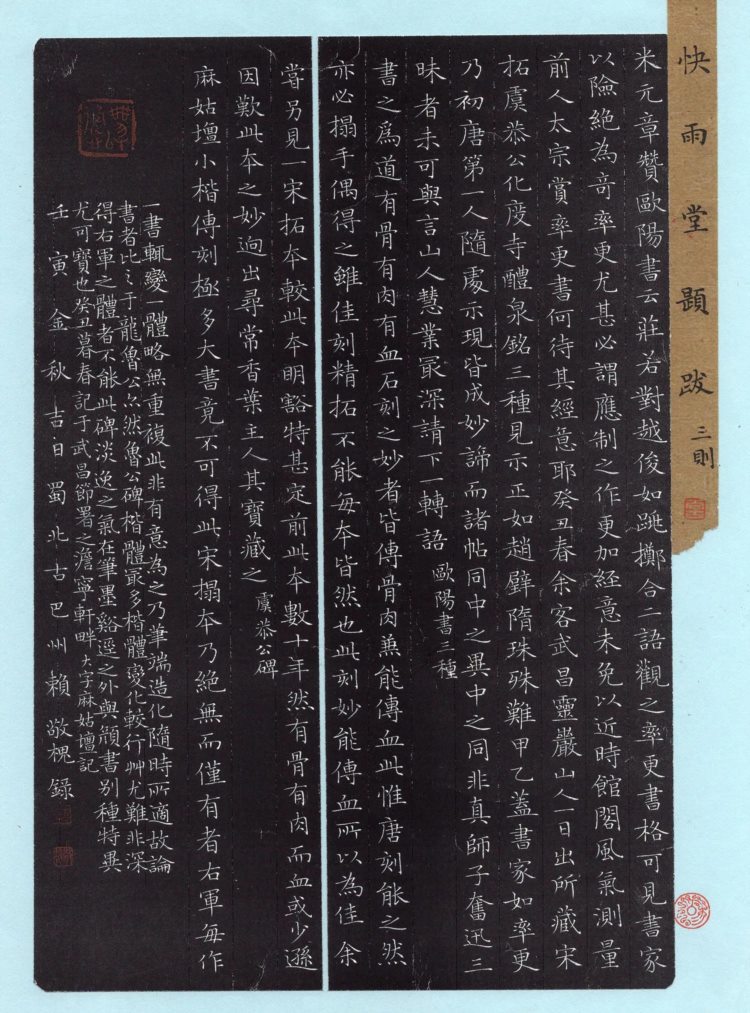 快雨堂題跋 三則
米元章贊歐陽書云莊若對越俊如跳擲合二語觀之率更書格可見書家
以險絕為奇率更尤甚必謂應制之作更加經意未免以近時館閣風氣測量
前人太宗賞率更書何待其經意耶癸丑春余客武昌靈巖山人一日出所藏宋
拓虞恭公化度寺醴泉銘三種見示正如趙璧隋珠殊難甲乙蓋書家如率更
乃初唐第一人隨處示現皆成妙諦而諸帖同中之異中之同非真師子奮迅三
昧者未可與言山人慧業冣深請下一轉語 歐陽書三種
書之為道有骨有肉有血石刻之妙者皆傳骨肉兼能傳血此惟唐刻能之然
亦必搨手偶得之雖佳刻精拓不能每本皆然也此刻妙能傳血所以為佳余
嘗另見一宋拓本較此本明豁特甚定前此本數十年然有骨有肉而血或少遜
因歎此本之妙迥出尋常香葉主人其寶藏之 虞恭公碑
麻姑壇小楷傳刻極多大書竟不可得此宋搨本乃絕無而僅有者右軍每作
一書輒變一體略無重複此非有意為之乃筆端造化隨時所適故論
書者比之于龍魯公亦然魯公碑楷體最多楷體變化較行艸尤難非深
得右軍之體者不能此碑淡逸之氣在筆墨谿逕之外與顏書別種特異
尤可寶也癸丑暮春記于武昌節署之澹寧軒畔 大字麻姑壇記
壬寅金秋吉日蜀北古巴州賴敬槐錄